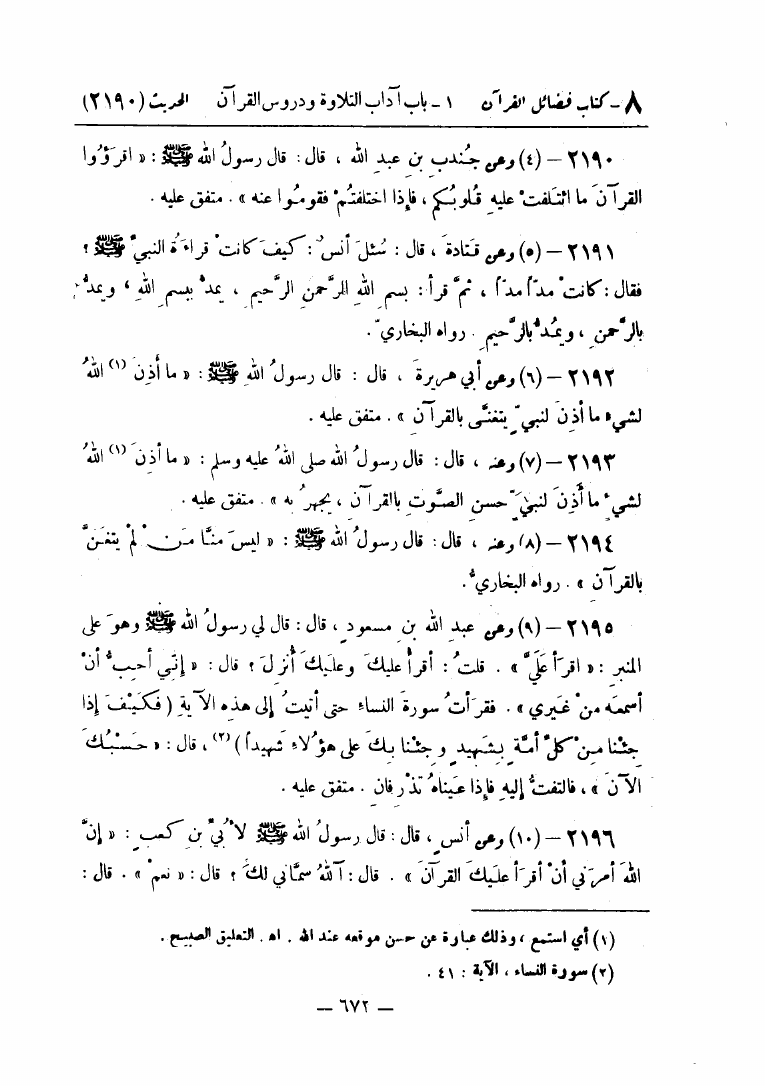 ٨ - كتاب فضائل القرآن ١ - باب آداب التلاوة ودروس القرآن الحديث (٢١٩٠)
٢١٩٠ – (٤) وعن جُندبِ بنِ عبدِ الله ، قال : قال رسولُ الله ﷺ : « اقرَؤُوا
القرآنَ ما ائتَلفتْ عليهِ قُلوبُكم ، فإذا اختلفتُمْ فقومُوا عنه » . متفق عليه .
٢١٩١ – (٥) وعن قَتادةَ ، قال : سُئلَ أنسٌ : كيفَ كانتْ قراءَةُ النبيِّ ﷺ ؟
فقال : كانتْ مدّاً مدّاً ، ثمَّ قرأ : بسمِ اللهِ الرَّحمنِ الرَّحيمِ ، يمدُّ ببسمِ اللهِ ، ويمدُّ
بالرَّحمنِ ، ويمُدُّ بالرَّحيمِ . رواه البخاريّ .
٢١٩٢ – (٦) وعن أبي هريرةَ ، قال : قال رسولُ اللهِ ﷺ : « ما أذِنَ (١) اللهُ
لشيءٍ ما أذِنَ لنبيٍّ يتغنَّى بالقرآنِ » . متفق عليه .
٢١٩٣ – (٧) وعنه ، قال : قال رسولُ الله صلى اللهُ عليه وسلم : « ما أذِنَ (١) اللهُ
لشيءٍ ما أَذِنَ لنبيٍّ حسنِ الصَّوتِ بالقرآنِ ، يجهرُ به » . متفق عليه .
٢١٩٤ – (٨) وعنه ، قال : قال رسولُ الله ﷺ : « ليسَ منَّا مَنْ لمْ يتغَنَّ
بالقرآنِ » . رواه البخاريُّ .
٢١٩٥ – (٩) وعن عبدِ اللهِ بنِ مسعودٍ ، قال : قال لي رسولُ اللهِ ﷺ وهوَ على
المنبرِ : « اقرَأ عَلَيَّ » . قلتُ : أقرأُ عليكَ وعليكَ أُنزلَ ؟ قال : « إنِّي أحبُّ أنْ
أسمعَه منْ غَيري » . فقرَأتُ سورةَ النساءِ حتى أتيتُ إلى هذهِ الآيةِ ( فكَيْفَ إذا
جِئْنا مِنْ كلِّ أمَّةٍ بِشهيدٍ وجِئْنا بِكَ على هؤُلاءِ شَهيداً ) (٢) ، قال : « حَسْبُكَ
الآنَ » ، فالتفتُّ إليهِ فإذا عَيناهُ تذْرِفانِ . متفق عليه .
٢١٩٦ – (١٠) وعن أنسٍ ، قال : قال رسولُ اللهِ ﷺ لأُبيِّ بنِ كعبٍ : « إنَّ
اللهَ أمرَني أنْ أقرَأ علَيكَ القرآنَ » . قال : آللهُ سمَّاني لكَ ؟ قال : « نعمْ » . قال :
(١) أي استمع ، وذلك عبارة عن حسن موقعه عند الله . اه . التعليق الصبيح .
(٢) سورة النساء ، الآية : ٤١ .
– ٦٧٢ –